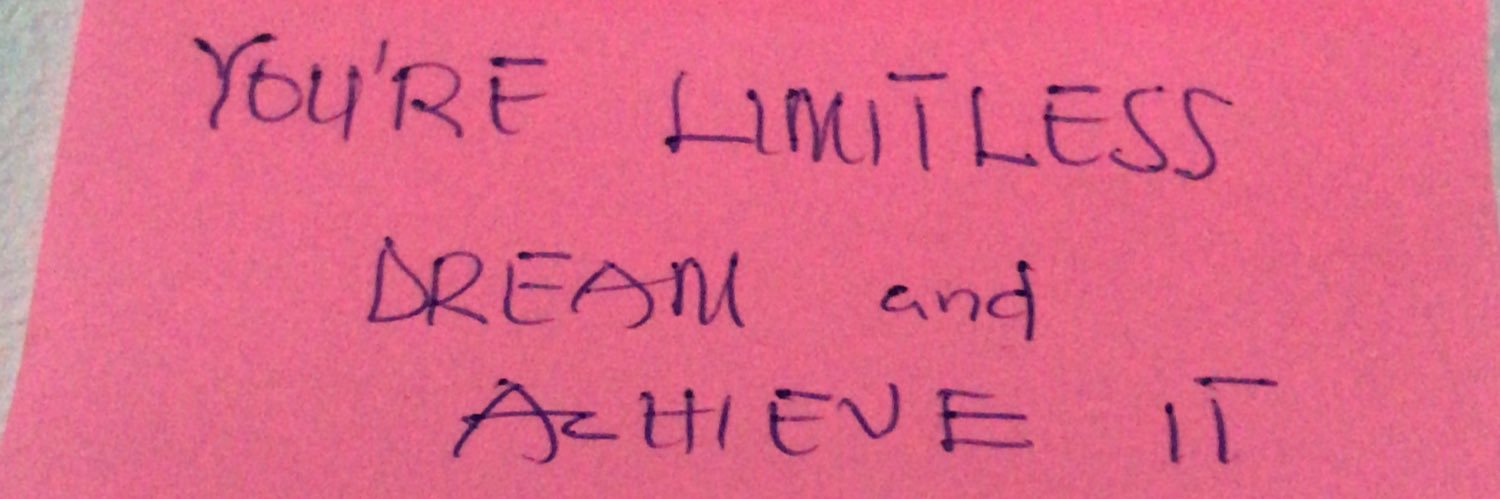 YOU'RE LIMITLESS
DREAM and
ACHIEVE IT